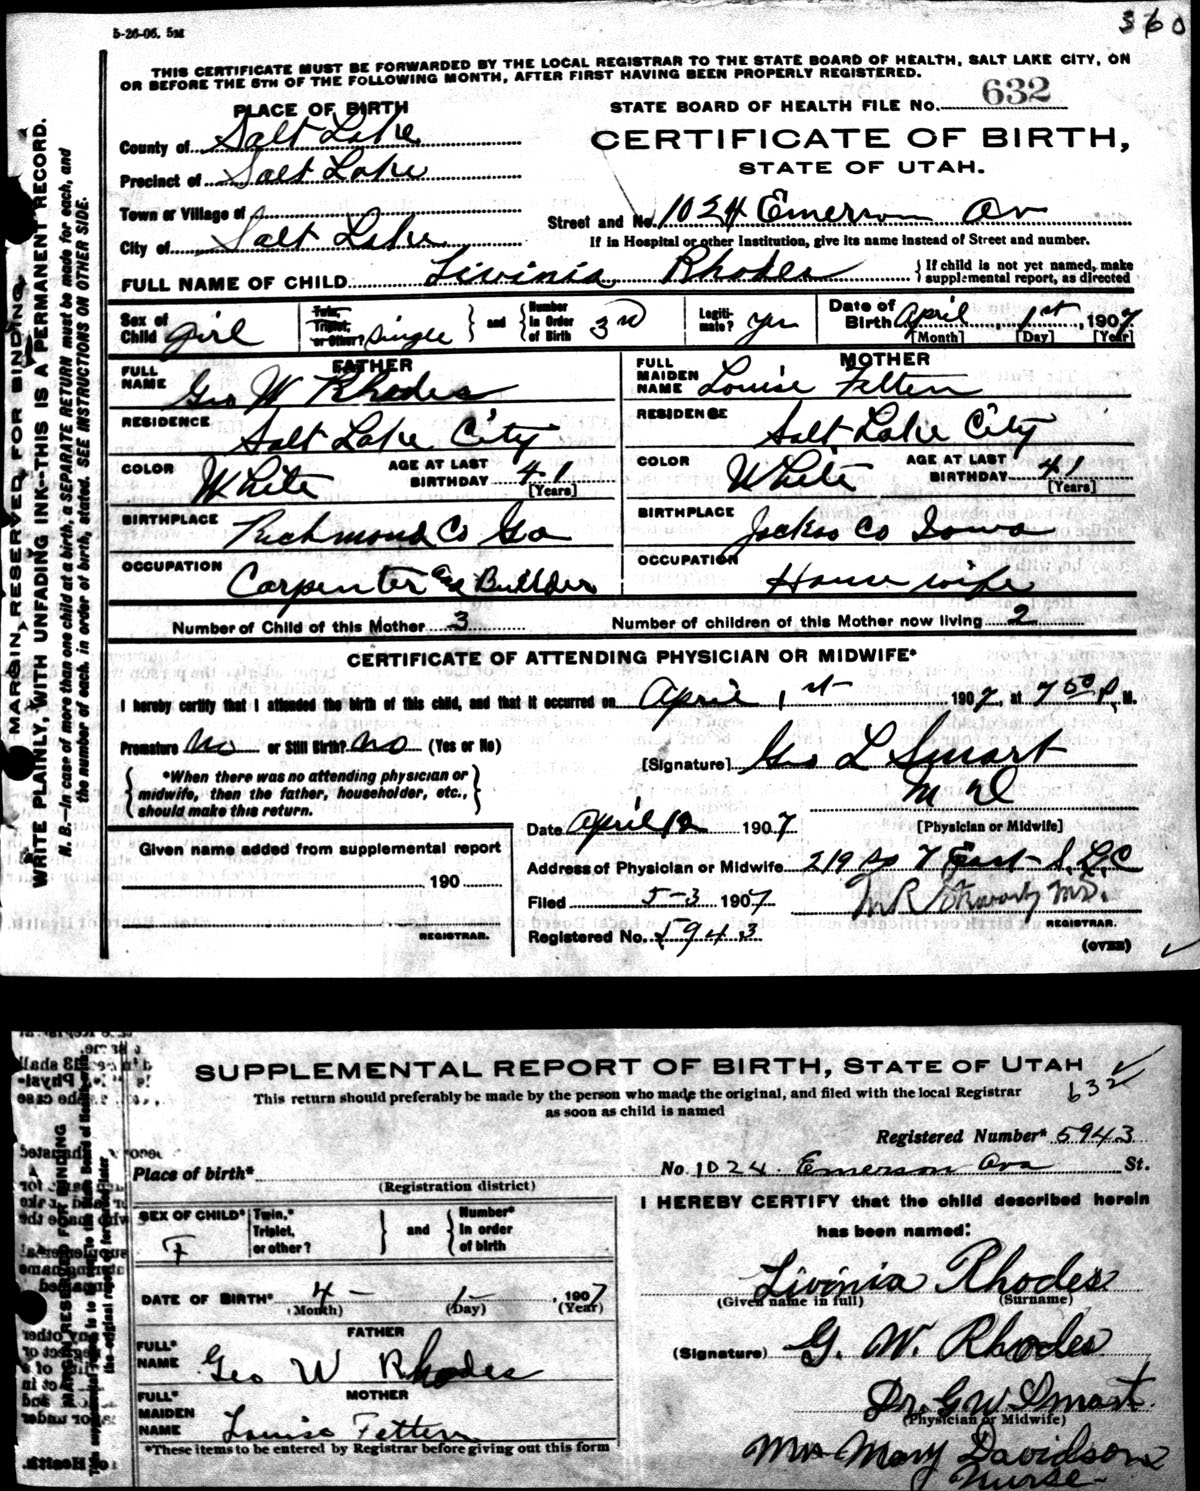 5-26-06. 5M
360
THIS CERTIFICATE MUST BE FORWARDED BY THE LOCAL REGISTRAR TO THE STATE BOARD OF HEALTH, SALT LAKE CITY, ON
OR BEFORE THE 5TH OF THE FOLLOWING MONTH, AFTER FIRST HAVING BEEN PROPERLY REGISTERED.
MARGIN RESERVED FOR BINDING.
WRITE PLAINLY, WITH UNFADING INK--THIS IS A PERMANENT RECORD.
N. B.--In case of more than one child at a birth, a SEPARATE RETURN must be made for each, and
the number of each, in order of birth, stated. SEE INSTRUCTIONS ON OTHER SIDE.
PLACE OF BIRTH
STATE BOARD OF HEALTH FILE No. 632
County of Salt Lake
CERTIFICATE OF BIRTH,
STATE OF UTAH.
Precinct of Salt Lake
Town or Village of
Street and No. 1024 Emerson Av
City of Salt Lake
If in Hospital or other Institution, give its name instead of Street and number.
FULL NAME OF CHILD Livinia Rhodes
If child is not yet named, make
supplemental report, as directed
Sex of Child girl
Twin, Triplet, or Other? Single
and Number in Order of Birth 3rd
Legitimate? yes
Date of Birth April 1st, 1907
[Month] [Day] [Year]
FATHER
FULL NAME Geo W Rhodes
MOTHER
FULL MAIDEN NAME Louise Felten
RESIDENCE Salt Lake City
RESIDENCE Salt Lake City
COLOR White AGE AT LAST BIRTHDAY 41 [Years]
COLOR White AGE AT LAST BIRTHDAY 41 [Years]
BIRTHPLACE Richmond Co Ga
BIRTHPLACE Jackso Co Iowa
OCCUPATION Carpenter and Builder
OCCUPATION House wife
Number of Child of this Mother 3
Number of children of this Mother now living 2
CERTIFICATE OF ATTENDING PHYSICIAN OR MIDWIFE*
I hereby certify that I attended the birth of this child, and that it occurred on April 1st 1907, at 7 50 P. M.
Premature No or Still Birth? No (Yes or No)
[Signature] Geo L Smart
M D
[Physician or Midwife]
*When there was no attending physician or
midwife, then the father, householder, etc.,
should make this return.
Date April 12 1907
Given name added from supplemental report
190
REGISTRAR.
Address of Physician or Midwife 219 So 7 East S. L. C
Filed 5-3 1907
REGISTRAR.
Registered No. 5943
(OVER)
SUPPLEMENTAL REPORT OF BIRTH, STATE OF UTAH
632
This return should preferably be made by the person who made the original, and filed with the local Registrar
as soon as child is named
Registered Number* 5943
Place of birth*
(Registration district)
No. 1024 Emerson Ave St.
SEX OF CHILD* F
Twin,* Triplet, or other?
and Number* In order of birth
I HEREBY CERTIFY that the child described herein
has been named:
DATE OF BIRTH* 4 - 1 - , 1907
(Month) (Day) (Year)
Livinia Rhodes
(Given name in full) (Surname)
FATHER
FULL* NAME Geo W Rhodes
(Signature) G. W. Rhodes
MOTHER
FULL* MAIDEN NAME Louise Felten
Dr. G W Smart.
(Physician or Midwife)
*These items to be entered by Registrar before giving out this form
Mrs Mary Davidson
Nurse-
MARGIN RESERVED FOR BINDING